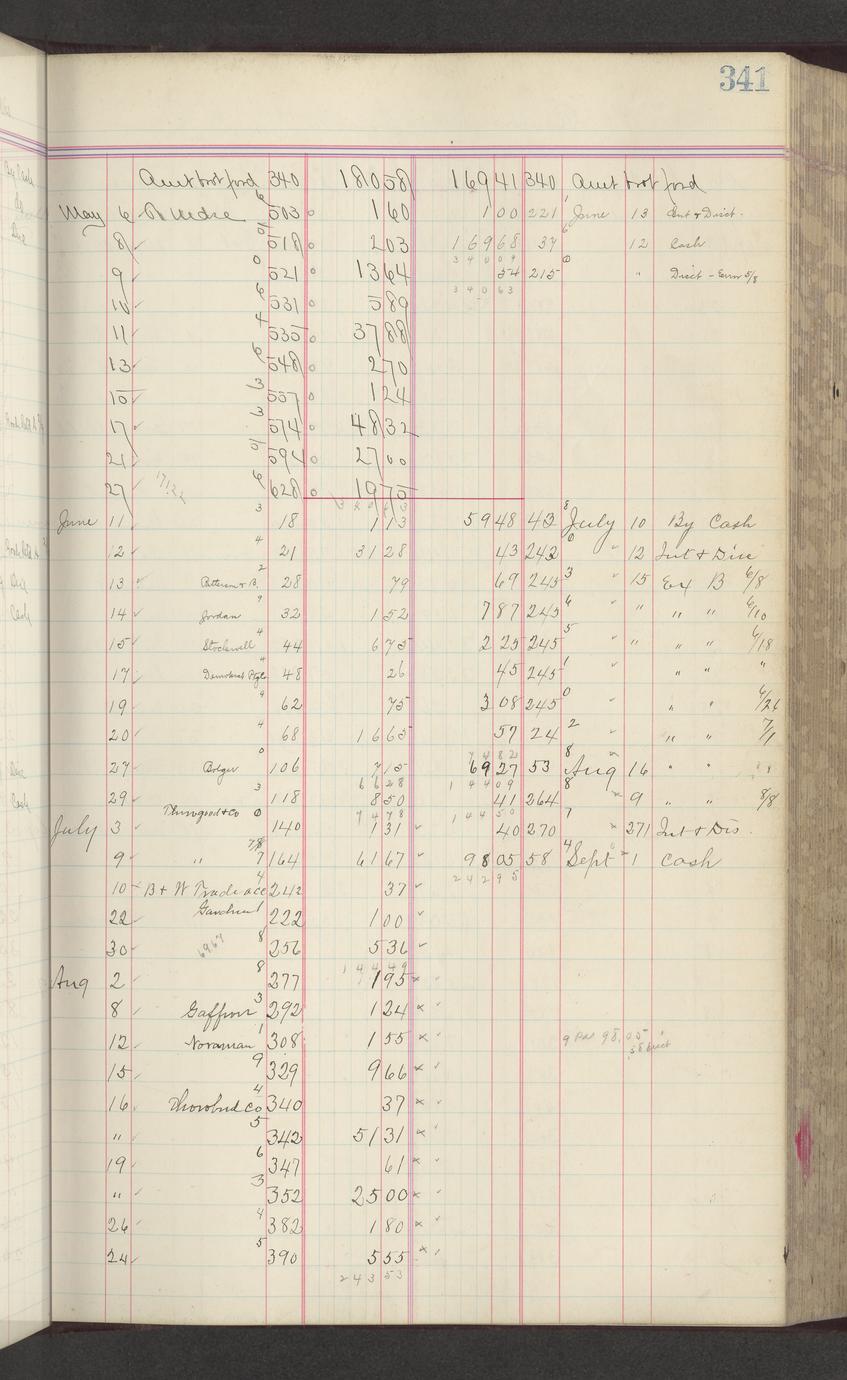 341
Amt brot ford 340 180 58 169 41 340 Amt brot ford
May 6 503 1 60 1 00 221 June 13 Int & Disct.
8 518 2 03 169 68 37 12 Cash
340 09
9 521 13 64 54 215 " Disct - Error 5/8
340 63
10 531 5 89
11 535 37 88
13 548 2 70
15 557 1 24
17 574 48 32
21 594 27 00
27 628 19 75
June 11 18 1 13 59 48 42 July 10 By Cash
12 21 31 28 43 242 " 12 Int & Disc
13 Patterson & B. 28 79 69 245 " 15 Ex B 6/8
14 Jordan 32 1 52 7 87 245 " " " " 6/10
15 Stockwell 44 6 75 2 25 245 " " " " 6/18
17 Democrat 48 26 45 245 " " "
19 62 75 3 08 245 " " 6/21
20 68 16 65 57 24 " " 7/1
74 82
27 Bolger 106 7 15 69 27 53 Aug 16 " "
66 28 144 09
29 118 8 50 41 264 9 " " 8/8
Thurgood & Co 74 78 144 50
July 3 140 1 31 40 270 271 Int & Dis
9 " 164 61 67 98 05 58 Sept 1 Cash
242 95
10 B & W Trade acc 242 37
22 222 1 00
30 69 67 256 5 36
144 49
Aug 2 277 1 95
8 292 1 24
12 308 1 55
15 329 9 66
16 340 37
" 342 51 31
19 347 61
" 352 25 00
26 382 1 80
24 390 5 55
243 53